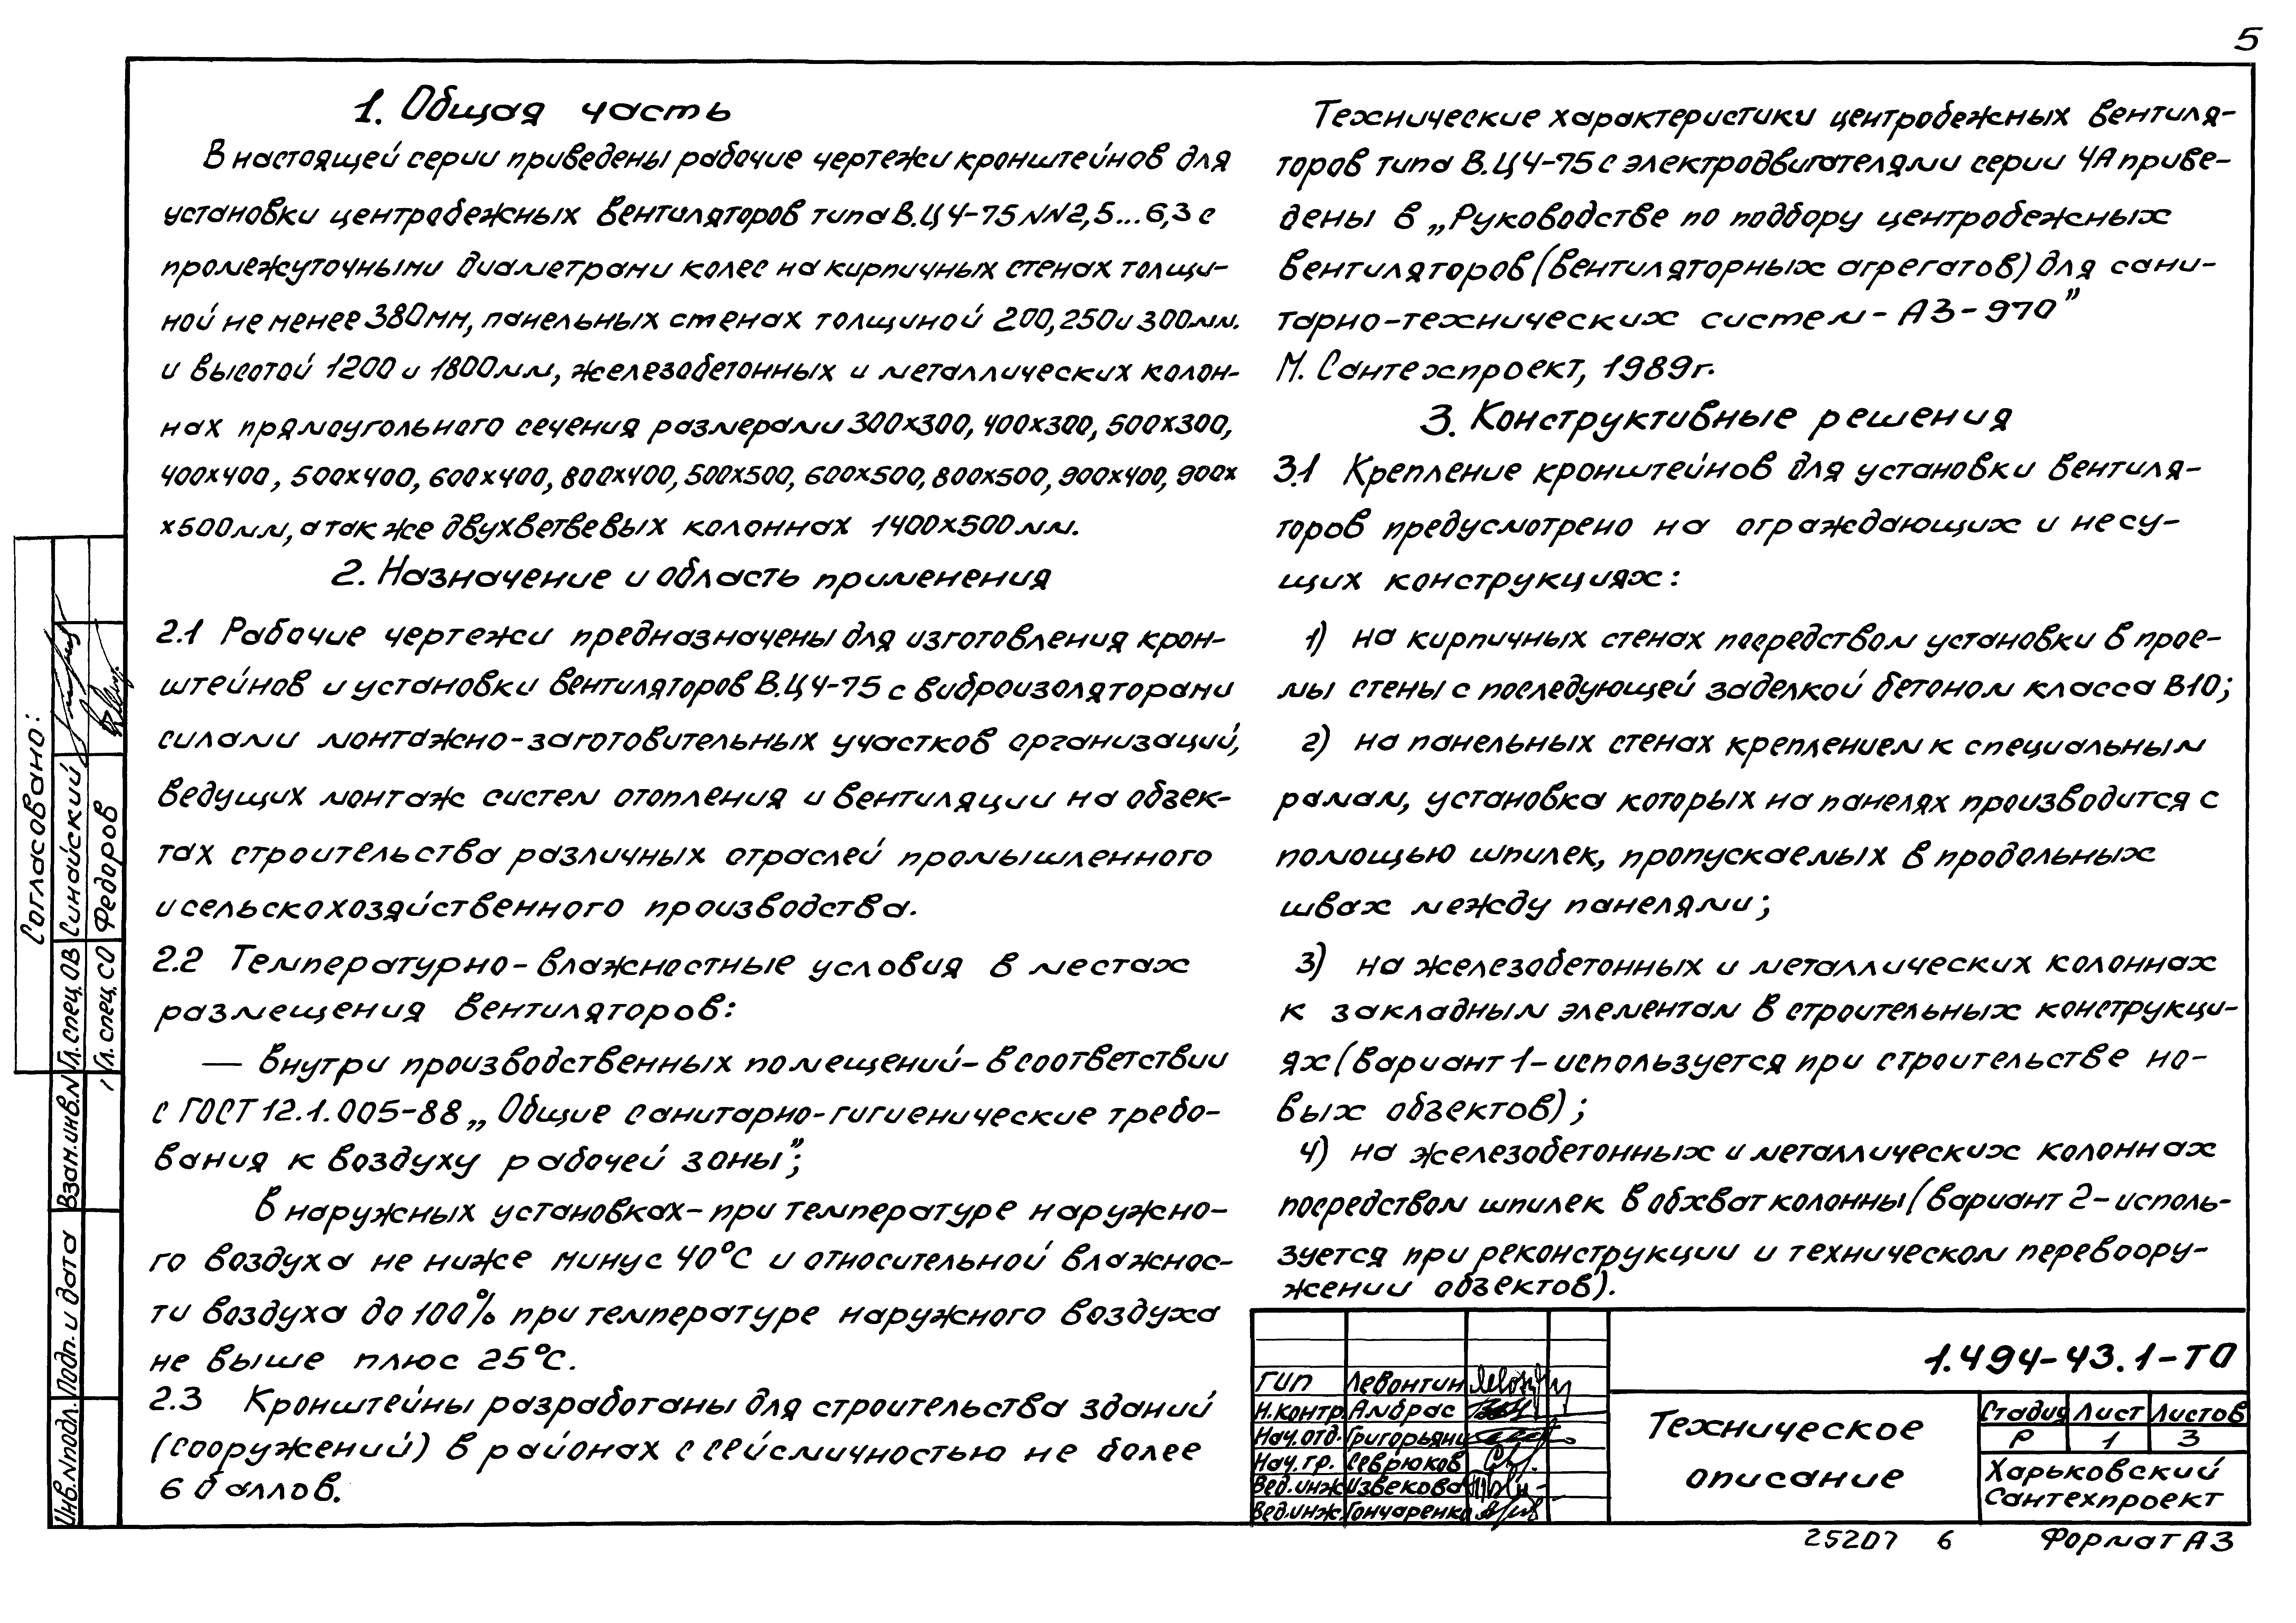 5
1. Общая часть
В настоящей серии приведены рабочие чертежи кронштейнов для
установки центробежных вентиляторов типа В.Ц 4-75 NN2,5...6,3 с
промежуточными диаметрами колес на кирпичных стенах толщи-
ной не менее 380мм, панельных стенах толщиной 200, 250 и 300мм.
и высотой 1200 и 1800мм, железобетонных и металлических колон-
нах прямоугольного сечения размерами 300х300, 400х300, 500х300,
400х400, 500х400, 600х400, 800х400, 500х500, 600х500, 800х500, 900х400, 900х
х500мм, а так же двухветвевых колоннах 1400х500мм.
2. Назначение и область применения
2.1 Рабочие чертежи предназначены для изготовления крон-
штейнов и установки вентиляторов В.Ц 4-75 с виброизоляторами
силами монтажно-заготовительных участков организаций,
ведущих монтаж систем отопления и вентиляции на объек-
тах строительства различных отраслей промышленного
и сельскохозяйственного производства.
2.2 Температурно-влажностные условия в местах
размещения вентиляторов:
— внутри производственных помещений - в соответствии
с ГОСТ 12.1.005-88 „Общие санитарно-гигиенические требо-
вания к воздуху рабочей зоны";
в наружных установках - при температуре наружно-
го воздуха не ниже минус 40°С и относительной влажнос-
ти воздуха до 100% при температуре наружного воздуха
не выше плюс 25°С.
2.3 Кронштейны разработаны для строительства зданий
(сооружений) в районах с сейсмичностью не более
6 баллов.
Технические характеристики центробежных вентиля-
торов типа В.Ц 4-75 с электродвигателями серии 4А приве-
дены в „Руководстве по подбору центробежных
вентиляторов (вентиляторных агрегатов) для сани-
тарно-технических систем - АЗ-970"
М. Сантехпроект, 1989г.
3. Конструктивные решения
3.1 Крепление кронштейнов для установки вентиля-
торов предусмотрено на ограждающих и несу-
щих конструкциях:
1) на кирпичных стенах посредством установки в прое-
мы стены с последующей заделкой бетоном класса В10;
2) на панельных стенах креплением к специальным
рамам, установка которых на панелях производится с
помощью шпилек, пропускаемых в продольных
швах между панелями;
3) на железобетонных и металлических колоннах
к закладным элементам в строительных конструкци-
ях (вариант 1 - используется при строительстве но-
вых объектов);
4) на железобетонных и металлических колоннах
посредством шпилек в обхват колонны (вариант 2 - исполь-
зуется при реконструкции и техническом перевоору-
жении объектов).
Согласовано:
Гл. спец. ОВ Синайский
Гл. спец. СО Федоров
Взам. инв. N
Подп. и дата
Инв. N подл.
ГИП Левонтин
Н.контр. Амбрас
Нач. отд. Григорьянц
Нач. гр. Севрюков
Вед. инж. Извекова
Вед. инж. Гончаренко
1.494-43.1-ТО
Техническое
описание
Стадия Лист Листов
Р 1 3
Харьковский
Сантехпроект
25207 6 Формат А3